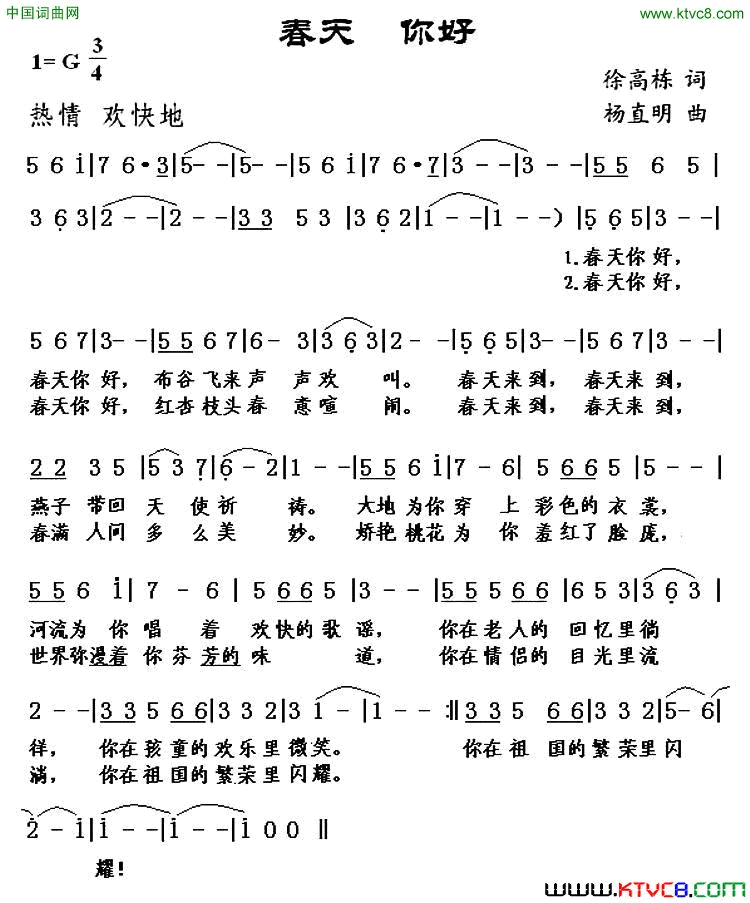 中国词曲网
www.ktvc8.com
春天 你好
1=G 3/4
徐高栋 词
热情 欢快地
杨直明 曲
5 6 i|7 6·3|5- -|5- -|5 6 i|7 6·7|3 - -|3 - -|5 5 6 5|
3 6 3|2 - -|2 - -|3 3 5 3|3 6 2|1 - -|1 - -)|5 6 5|3 - -|
1.春天你好,
2.春天你好,
5 6 7|3- -|5 5 6 7|6- 3|3 6 3|2- -|5 6 5|3- -|5 6 7|3- -|
春天你好, 布谷飞来声 声欢 叫。 春天来到, 春天来到,
春天你好, 红杏枝头春 意喧 闹。 春天来到, 春天来到,
2 2 3 5|5 3 7|6 - 2|1 - -|5 5 6 i|7 - 6|5 6 6 5|5 - -|
燕子 带回 天 使祈 祷。 大地为你穿 上 彩色的衣裳,
春满 人间 多 么美 妙。 娇艳桃花为 你 羞红了脸庞,
5 5 6 i|7 - 6|5 6 6 5|3 - -|5 5 5 6 6|6 5 3|3 6 3|
河流为 你 唱 着 欢快的歌谣, 你在老人的 回忆里徜
世界弥漫着 你芬 芳的味 道, 你在情侣的 目光里流
2 - -|3 3 5 6 6|3 3 2|3 1 -|1 - -:‖3 3 5 6 6|3 3 2|5- 6|
徉, 你在孩童的欢乐里微笑。 你在祖 国的繁荣里闪
淌, 你在祖国的繁荣里闪耀。
2 - i|i - -|i - -|i 0 0‖
耀!
www.KTVC8.com